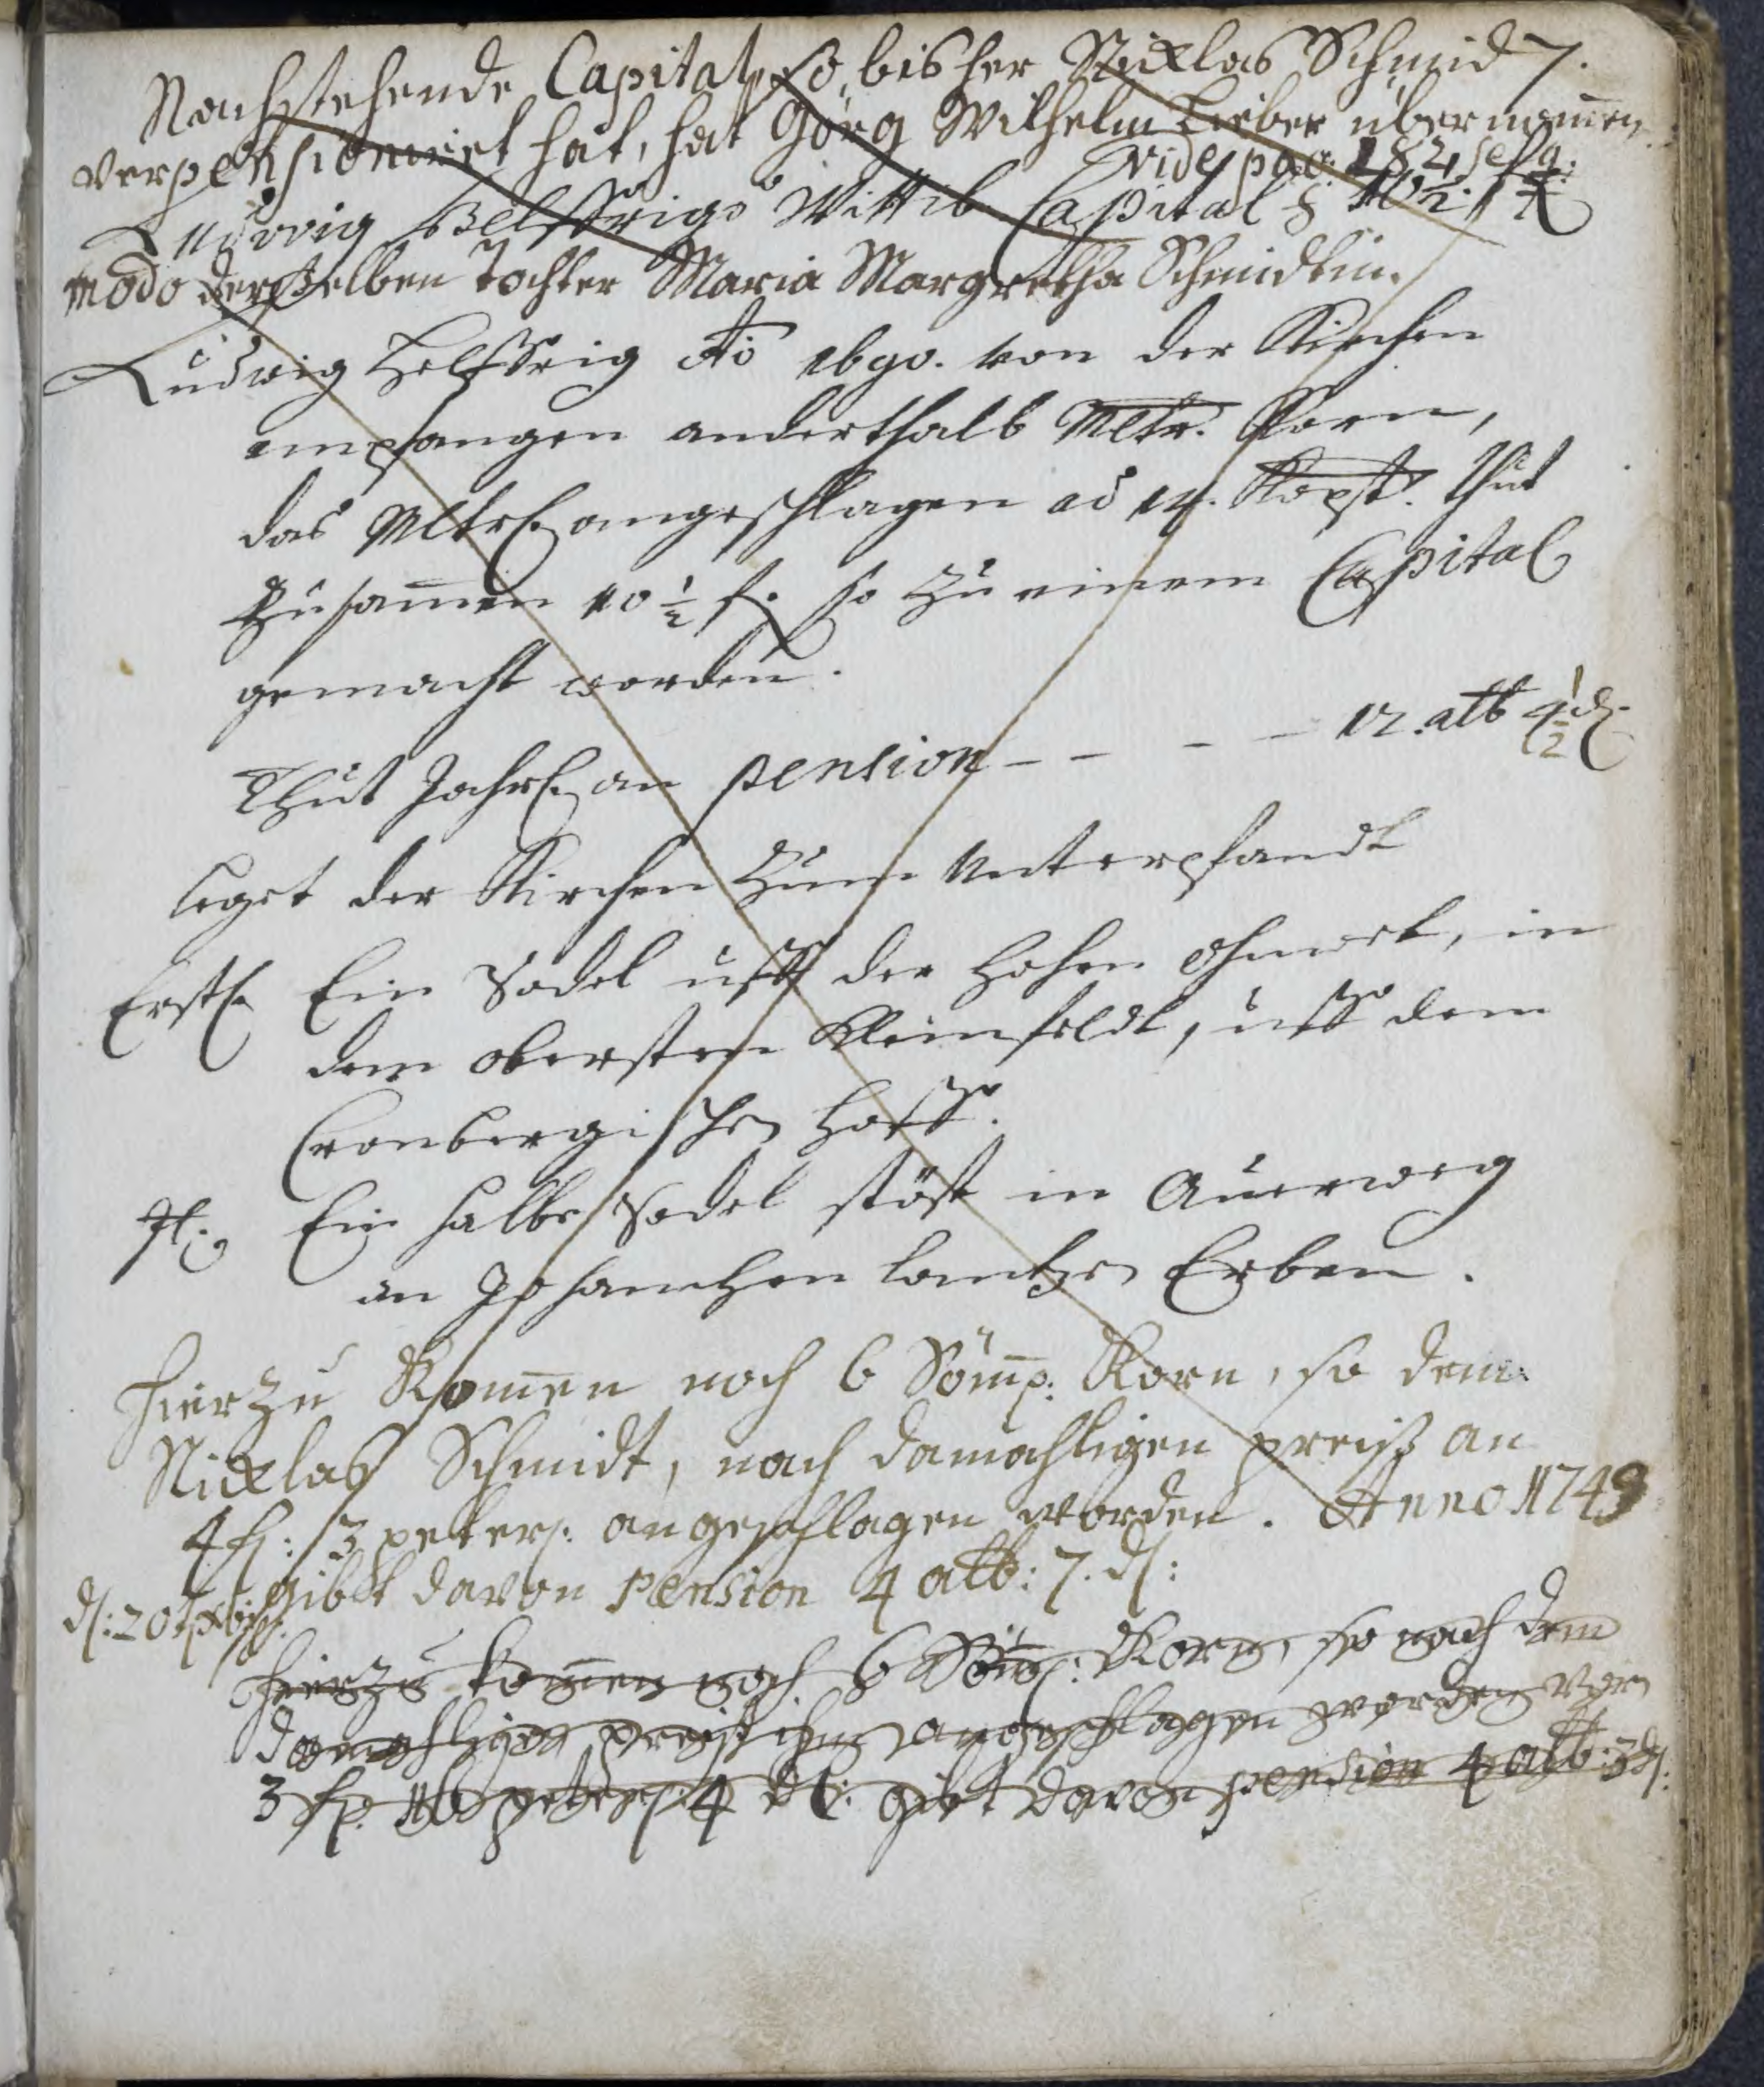 Nachstehende Capital, so bisher Nicklas Schmid 7.
verpensioniret hat, hat Görg Wilhelm Lieber übernom̅en
vide pag: 182, seqq:
Ludwig Helffrigs Wittib Capital f 10½.
modo derselben Tochter Maria Margretha Schmidtin.
Ludwig Helffrig Ao 1690. von der Kirchen
empfangen anderthalb Mltr. Korn,
das Mltr. angeschlagen ad 14. Kopst. thut
zusam̅en 10½ f. so zu einem Capital
gemacht worden.
Thut Jahrl. an pension - - - - 12. alb 4½ d.
leget der Kirchen zum Unterpfandt
Erstl. Ein Sadel uff der hohen, in
dem obersten Kleinfeldt, uff dem
Cronbergischen Hoff.
It: Ein halbe Sadel stöst in Auerweg
an Johanchen Lantzen Erben.
Hierzu Kom̅en noch 6 Söm̅: Korn, so dem
Nicklaß Schmidt, nach damahligen preiß an
4 fl: 3 peterm: angeschlagen worden. Anno 1749
d: 20t xbris. gibt davon pension 4 alb: 7. d:
Hierzu kom̅en noch 6 Söm̅: Korn, so nach dem
damahligen preiß ihm angeschlagen worden vor
3 fl. 16 peterm: 4 d: gibt davon pension 4 alb: 3 d: